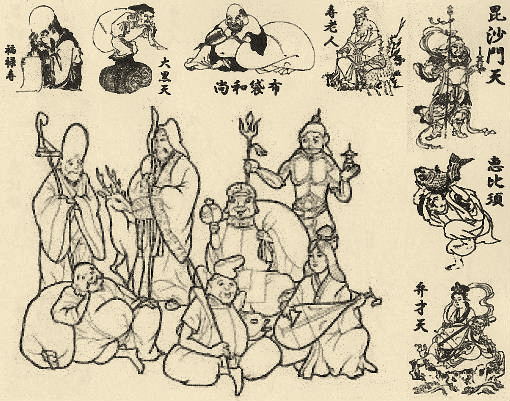 福禄寿
大黒天
布袋和尚
寿老人
毘沙門天
恵比須
弁才天